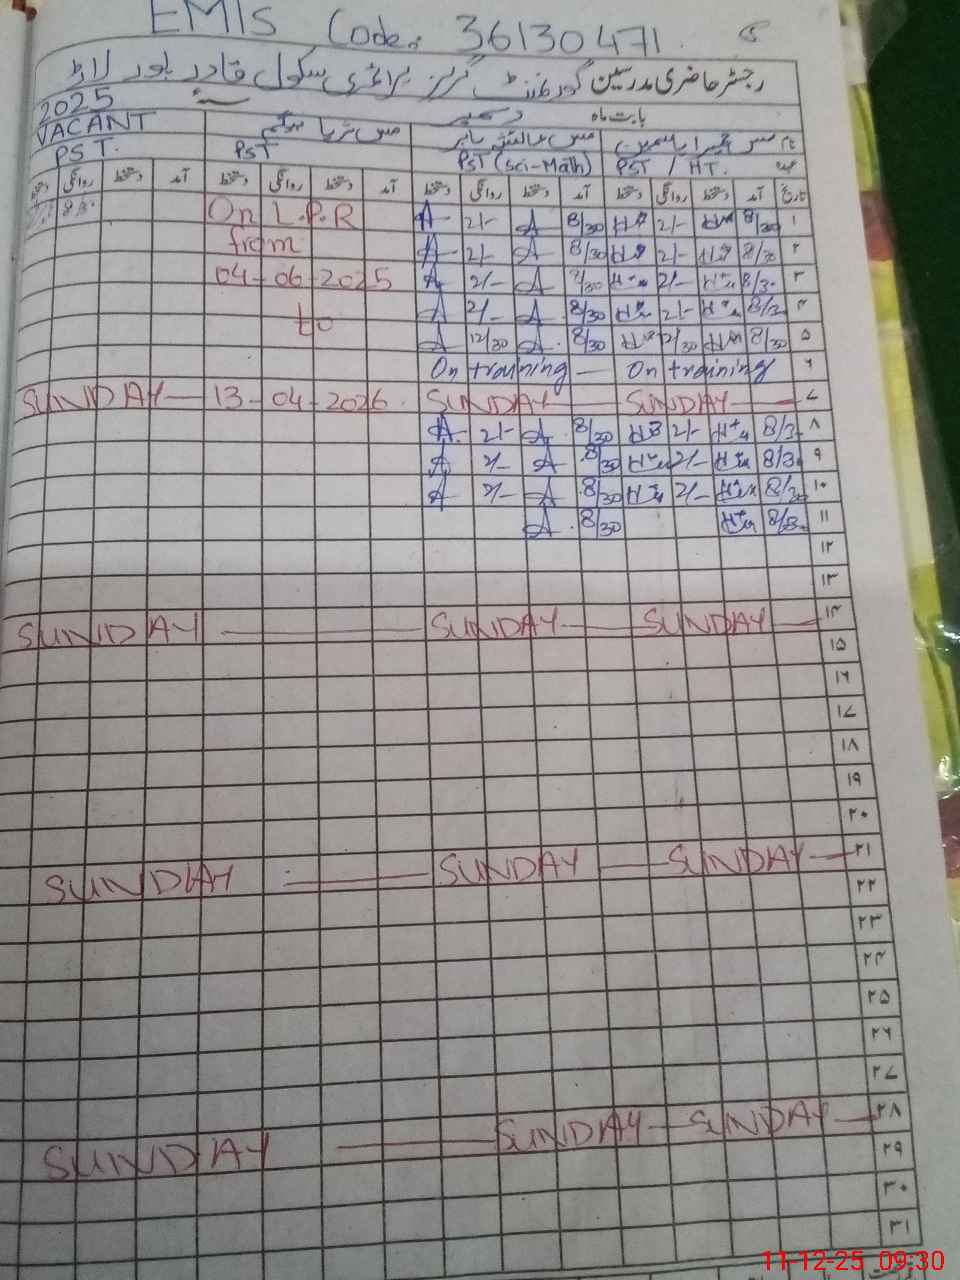 EMIS Code. 36130471
رجسٹر حاضری مدرسین گورنمنٹ گرلز پرائمری سکول قادر پور لاڑ
2025 بابت ماہ دسمبر
نام مس یاسمین مس عائشہ مس ثریا بیگم VACANT
PST / HT. PST (Sci-Math) PST PST.
تاریخ آمد دستخط روانگی دستخط آمد دستخط روانگی دستخط آمد دستخط روانگی دستخط آمد دستخط روانگی دستخط
۱ 8/30 2/- 8/30 A 2/- A On L.P.R
۲ 8/30 2/- 8/30 A 2/- A from
۳ 8/30 2/- 8/30 A 2/- A 04-06-2025
۴ 8/30 2/- 8/30 A 2/- A to
۵ 8/30 12/30 8/30 A 12/30 A
۶ On training On training —
۷ SUNDAY — SUNDAY — 13-04-2026 SUNDAY —
۸ 8/30 2/- 8/30 A 2/- A
۹ 8/30 2/- 8/30 A 2/- A
۱۰ 8/30 2/- 8/30 A 2/- A
۱۱ 8/30 8/30 A
۱۲
۱۳
۱۴ SUNDAY — SUNDAY — SUNDAY
۱۵
۱۶
۱۷
۱۸
۱۹
۲۰
۲۱ SUNDAY — SUNDAY — SUNDAY
۲۲
۲۳
۲۴
۲۵
۲۶
۲۷
۲۸ SUNDAY — SUNDAY — SUNDAY
۲۹
۳۰
۳۱
11-12-25 09:30